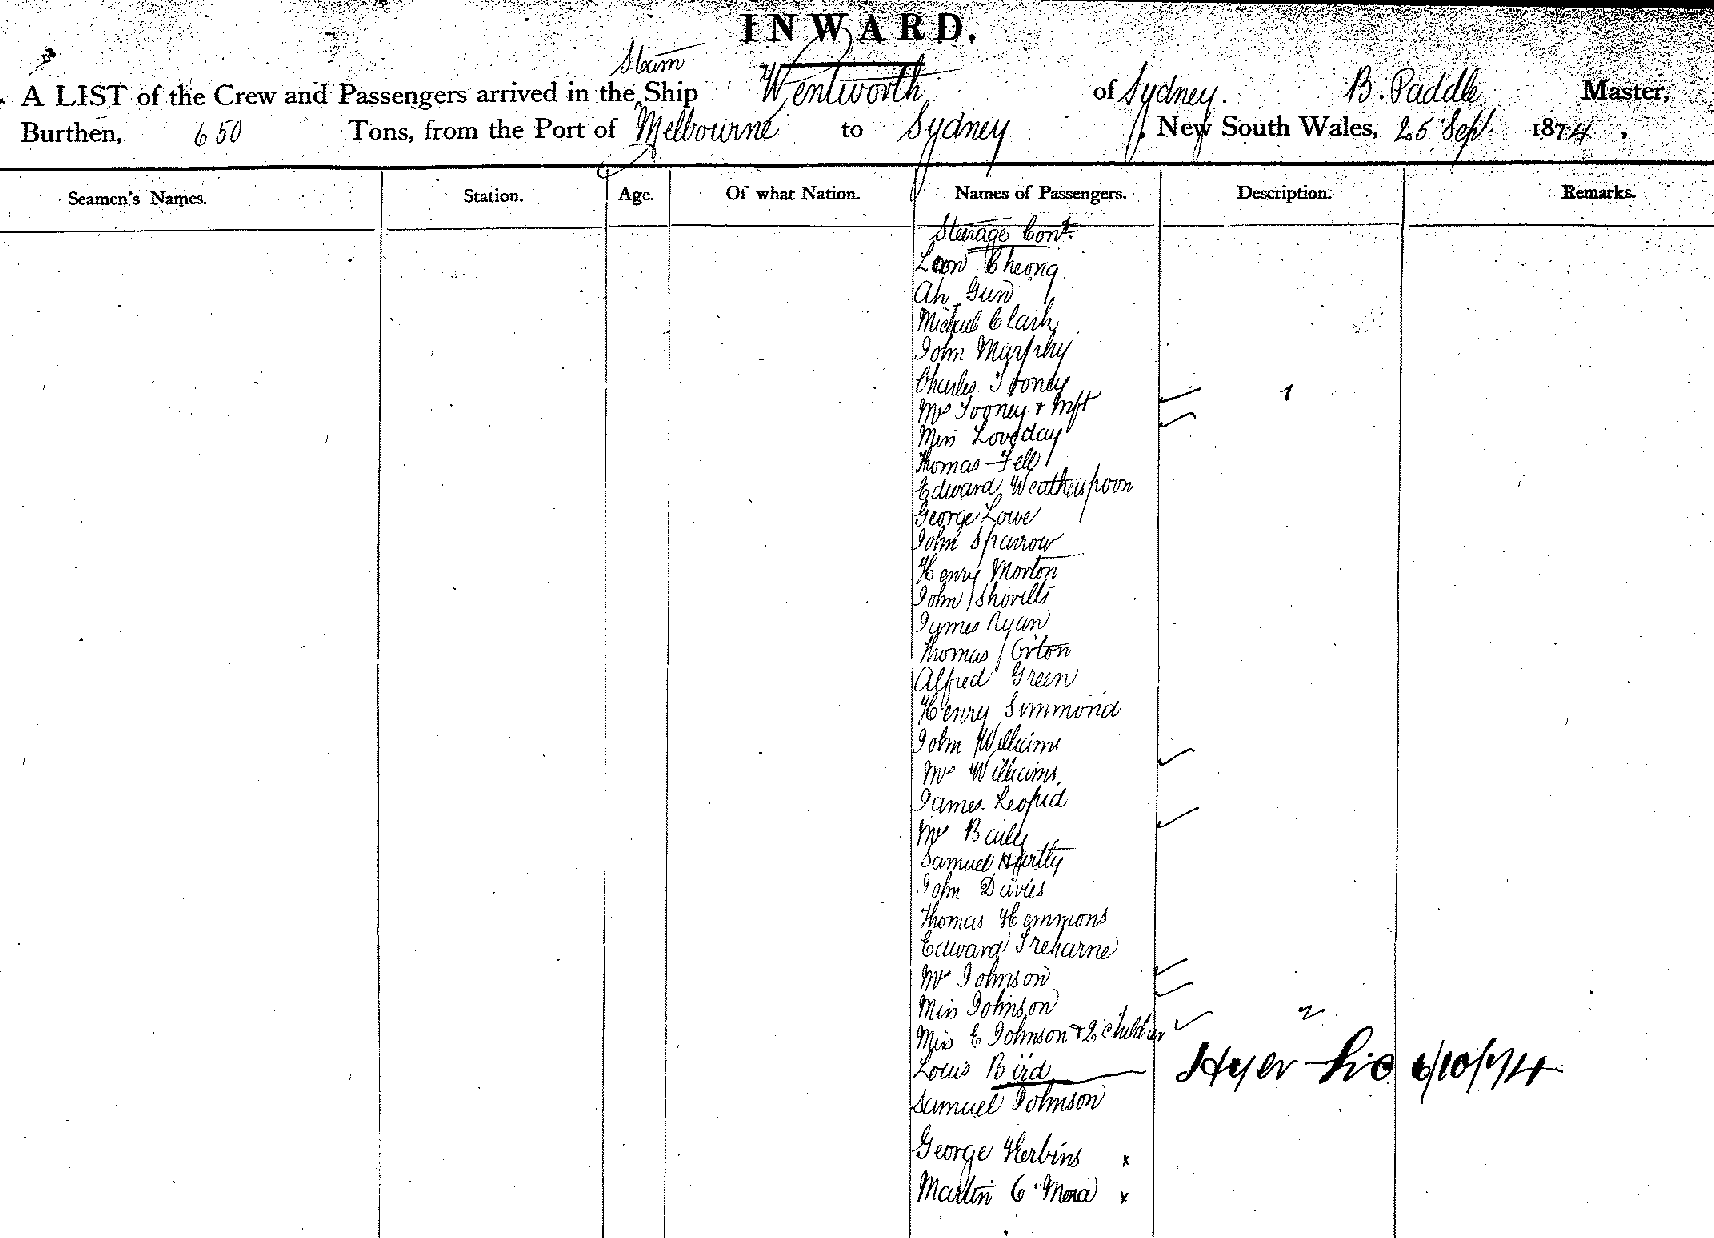 INWARD.
Steam
A LIST of the Crew and Passengers arrived in the Ship Wentworth of Sydney. B. Paddle Master,
Burthen, 650 Tons, from the Port of Melbourne to Sydney, New South Wales, 25 Sept 1874.
Seamen's Names. Station. Age. Of what Nation. Names of Passengers. Description. Remarks.
Steerage Cont.
Leon Cheong
Ah Gun
Michael Clark
John Murphy
Charles Tooney
Mrs Tooney & Inft 1
Miss Loveday
Thomas Fell
Edward Weatherspoon
George Lowe
John Sparrow
Henry Morton
John Shovills
James Ryan
Thomas Orton
Alfred Green
Henry Simmond
John Williams
Mrs Williams
James
Mrs Baily
Samuel Hartly
John Davies
Thomas Hemmons
Edward Treharne
Mrs Johnson
Miss Johnson
Miss E Johnson & 2 children 2
Louis Bird 6/10/74
Samuel Johnson
George Herbins x
Martin O'Mora x